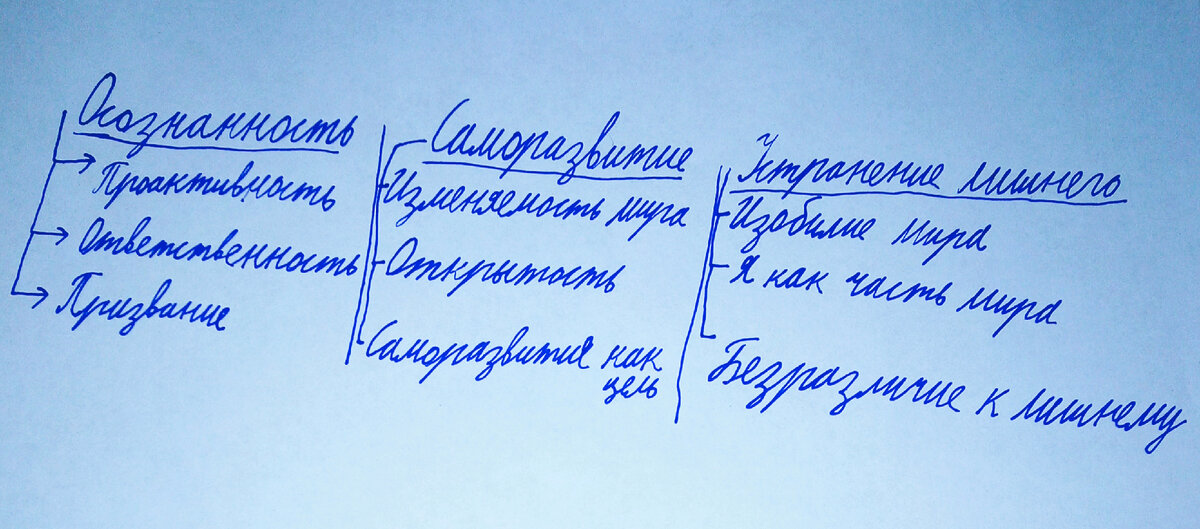 Осознанность
Проактивность
Ответственность
Призвание
Саморазвитие
Изменяемость мира
Открытость
Саморазвитие как
цель
Устранение лишнего
Изобилие мира
Я как часть мира
Безразличие к лишнему